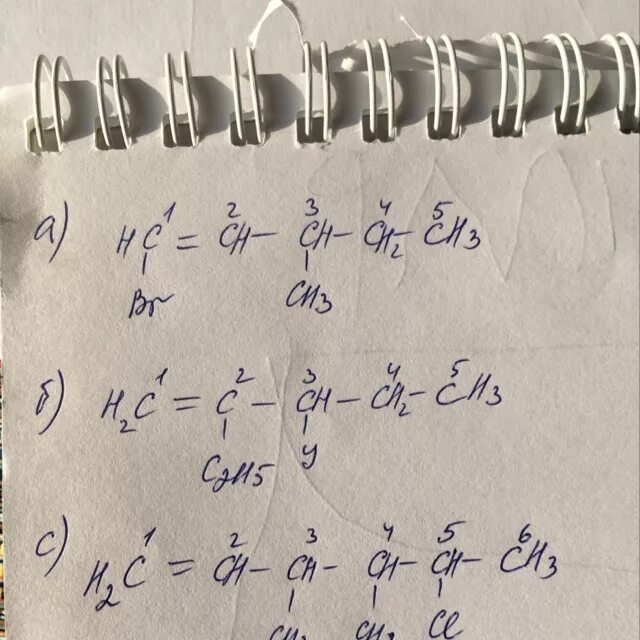 а) HC¹ = ²CH – ³CH – ⁴CH₂ – ⁵CH3
Br CH3
б) H₂C¹ = ²C – ³CH – ⁴CH₂ – ⁵CH3
C2H5 y
с) H₂C¹ = ²CH – ³CH – ⁴CH – ⁵CH – ⁶CH3
Cl